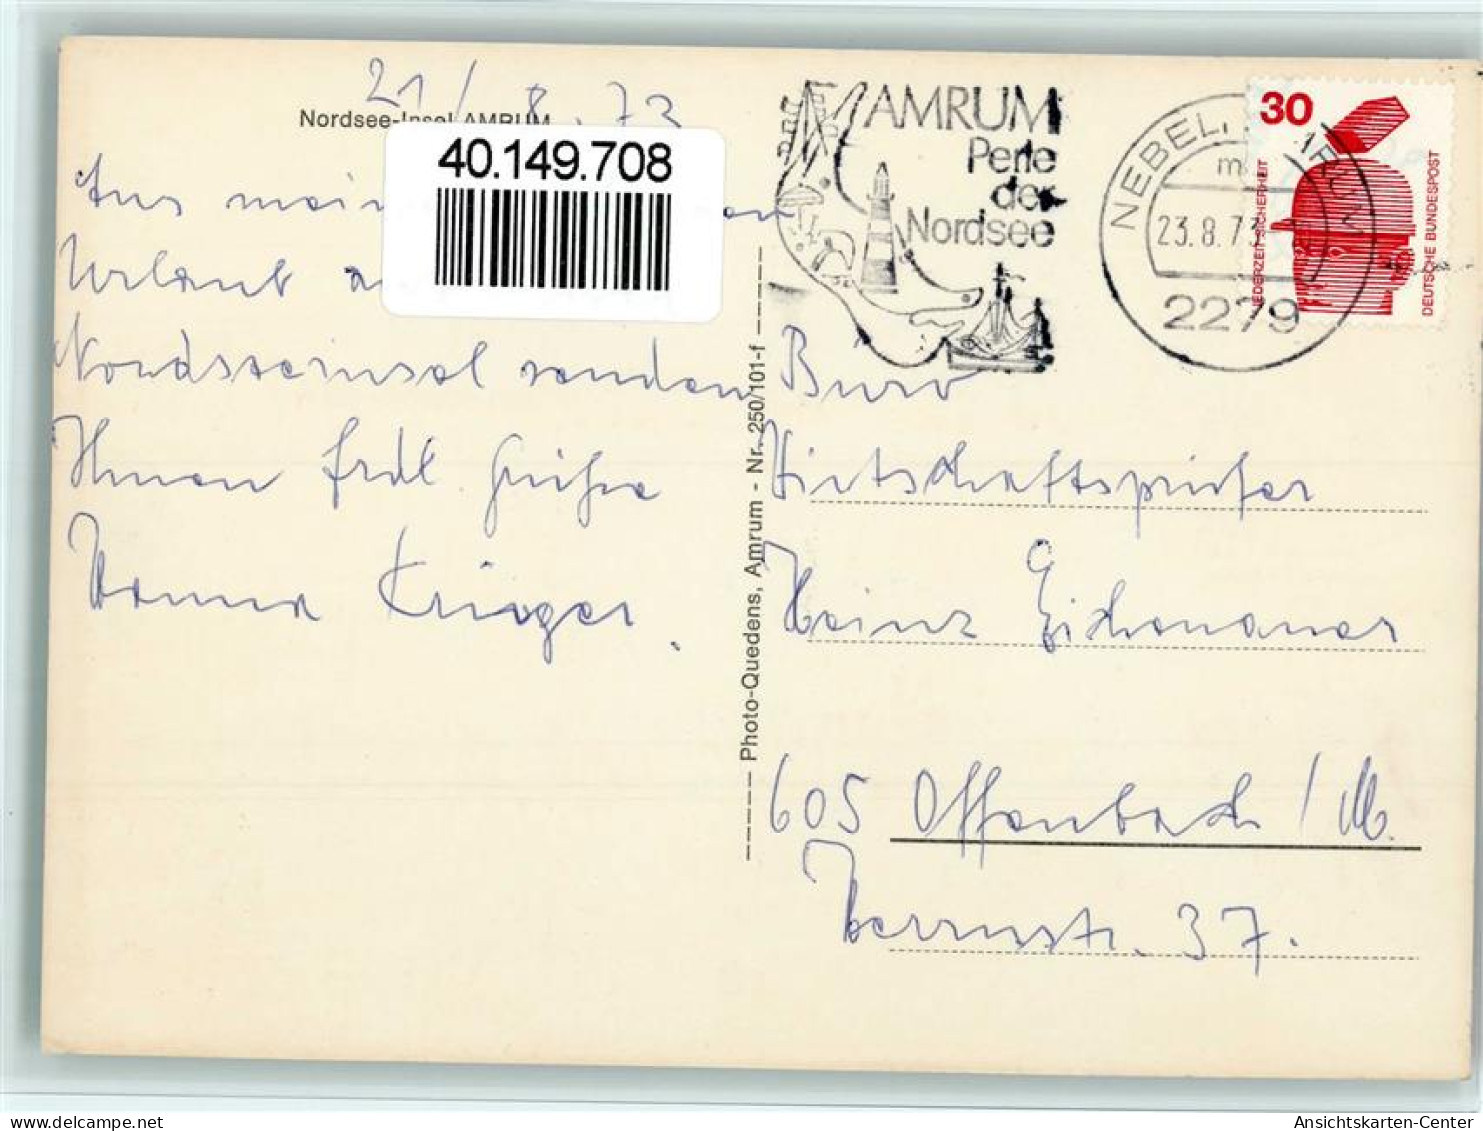 21/8.73
Nordsee-Insel AMRUM
40.149.708
Aus mein
Urlaub a
Nordseeinsel senden
Ihnen frdl. Grüße
Hanna Krieger.
Photo-Quedens, Amrum - Nr. 250/101-f
AMRUM
Perle
der
Nordsee
NEBEL, AMRUM
23.8.73
2279
30
JEDERZEIT SICHERHEIT
DEUTSCHE BUNDESPOST
Büro
Wirtschaftsprüfer
Heinz Eichenauer
605 Offenbach / M.
Herrnstr. 37.
Ansichtskarten-Center